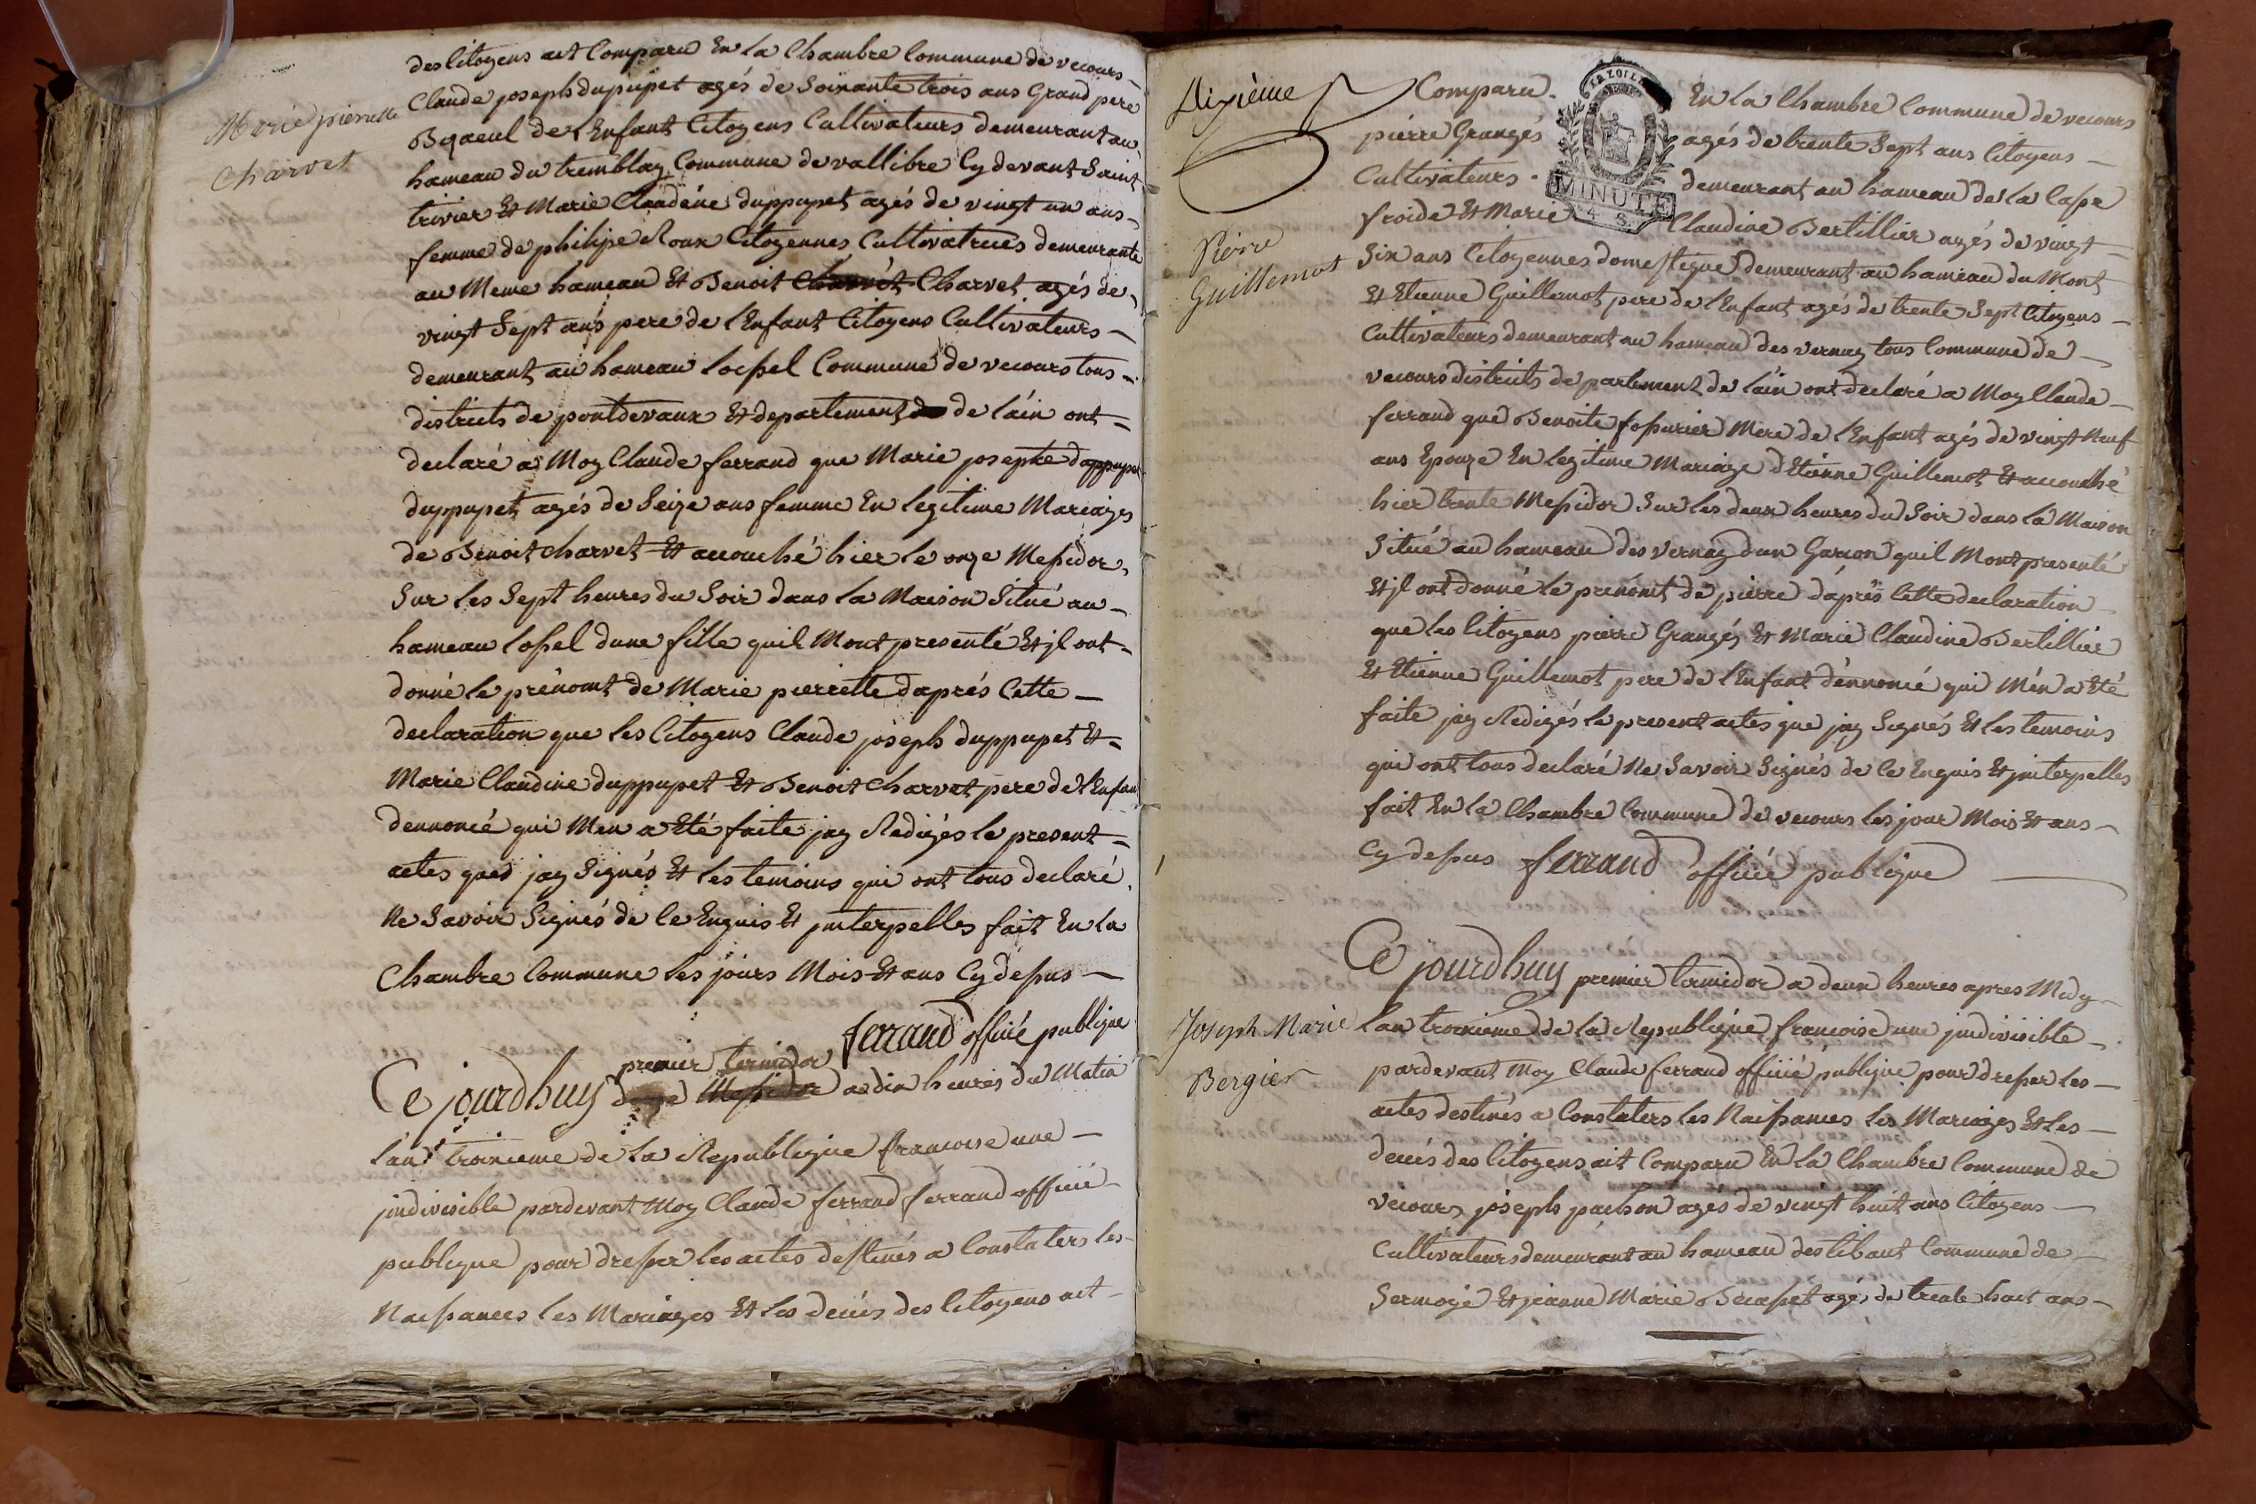 des Citoyens ait Comparu En La Chambre Commune de vecours
Claude joseph dupupet agés de Soixante trois ans Grand pere
de l'Enfant Citoyens Cultivateurs demeurant au
hameau du tremblay Commune de vallibre Cy devant Saint
trivier Et Marie Claudéne duppupet agés de vingt un ans
femme de philipe Roux Citoyennes Cultivatrices demeurante
au Meme hameau Et Benoit Charvet Charvet agés de
vingt Sept ans pere de l'Enfant Citoyens Cultivateurs
demeurant au hameau Lochel Commune de vecours tous
districts de pontdevaux Et departement de de láin ont
declaré a Moy Claude ferrand que Marie josephte duppupet
duppupet agés de Seize ans femme En legitime Mariages
de Benoit charvet Et accouché hier le onze Messidor
Sur les Sept heures du Soir dans la Maison Situé au
hameau lossel dune fille quil Mont presenté Et jl ont
donné le prénomt de Marie pierrette daprés Cette
declaration que les Citoyens Claude joseph duppupet Et
Marie Claudine duppupet Et Benoit charvet pere de l'Enfan
dennoncé qui Men a Eté faite jay Redigés le present
actes que jay Signés Et les temoins qui ont tous declaré
Ne Savoir Signés de Ce Enquis Et jnterpelles fait En La
Chambre Commune les jours Mois Et ans Cy dessus
ferrand officié publique
premier termidor
Ce jourdhuy douze Messidor a dix heures du Matin
lan troixieme de la Republique francoise une
jndivisible pardevant Moy Claude ferrand ferrand officié
publique pour dresser les actes destinés a Constaters les
Naissances les Mariages Et les decés des Citoyens ait
Marie pierrette
Charvet
Dixième
Comparu En La Chambre Commune de vecours
pierre Grangés agés de trente Sept ans Citoyens
Cultivateurs demeurant au hameau de la Case
froide Et Marie Claudine Bertillier agés de vingt
MINUTE
Six ans Citoyennes domestique demeurant au hameau du Mont
Et Etienne Guillemot pere de l'Enfant agés de trente Sept Citoyens
Cultivateurs demeurant au hameau des vernay tous Commune de
vecours districts de partement de láin ont declaré a Moy Claude
ferrand que Benoite fossurier Mere de l'Enfant agés de vingt Neuf
ans Epouze En legitime Mariage dEtienne Guillemot Et accouché
hier trente Messidor Sur les deux heures du Soir dans la Maison
Situé au hameau des vernay dun Garcon quil Mont presenté
Et jl ont donné le prénomt de pierre dáprés Cette declaration
que les Citoyens pierre Grangés Et Marie Claudine Bertillier
Et Etienne Guillemot pere de l'Enfant dénnoncé qui Mén a Eté
faite jay Redigés le present actes que jay Signés Et les temoins
qui ont tous declaré Ne Savoir Signés de Ce Enquis Et jnterpelles
fait En la Chambre Commune de vecours les jour Mois Et ans
Cy dessus ferrand officié publique
Pierre
Guillemot
Ce jourdhuy premier termidor a deux heures apres Midy
Lan troixieme de la Republique francoise une jndivisible
pardevant Moy Claude ferrand officié publique pour dresser les
actes destinés a Constaters les Naissances les Mariages Et les
decés des Citoyens ait Comparu En La Chambre Commune de
vecours joseph pachon agés de vingt huit ans Citoyens
Cultivateurs demeurant au hameau des tibaut Commune de
Sermoyé Et jeanne Marie agés de trente huit ans
Joseph Marie
Bergier